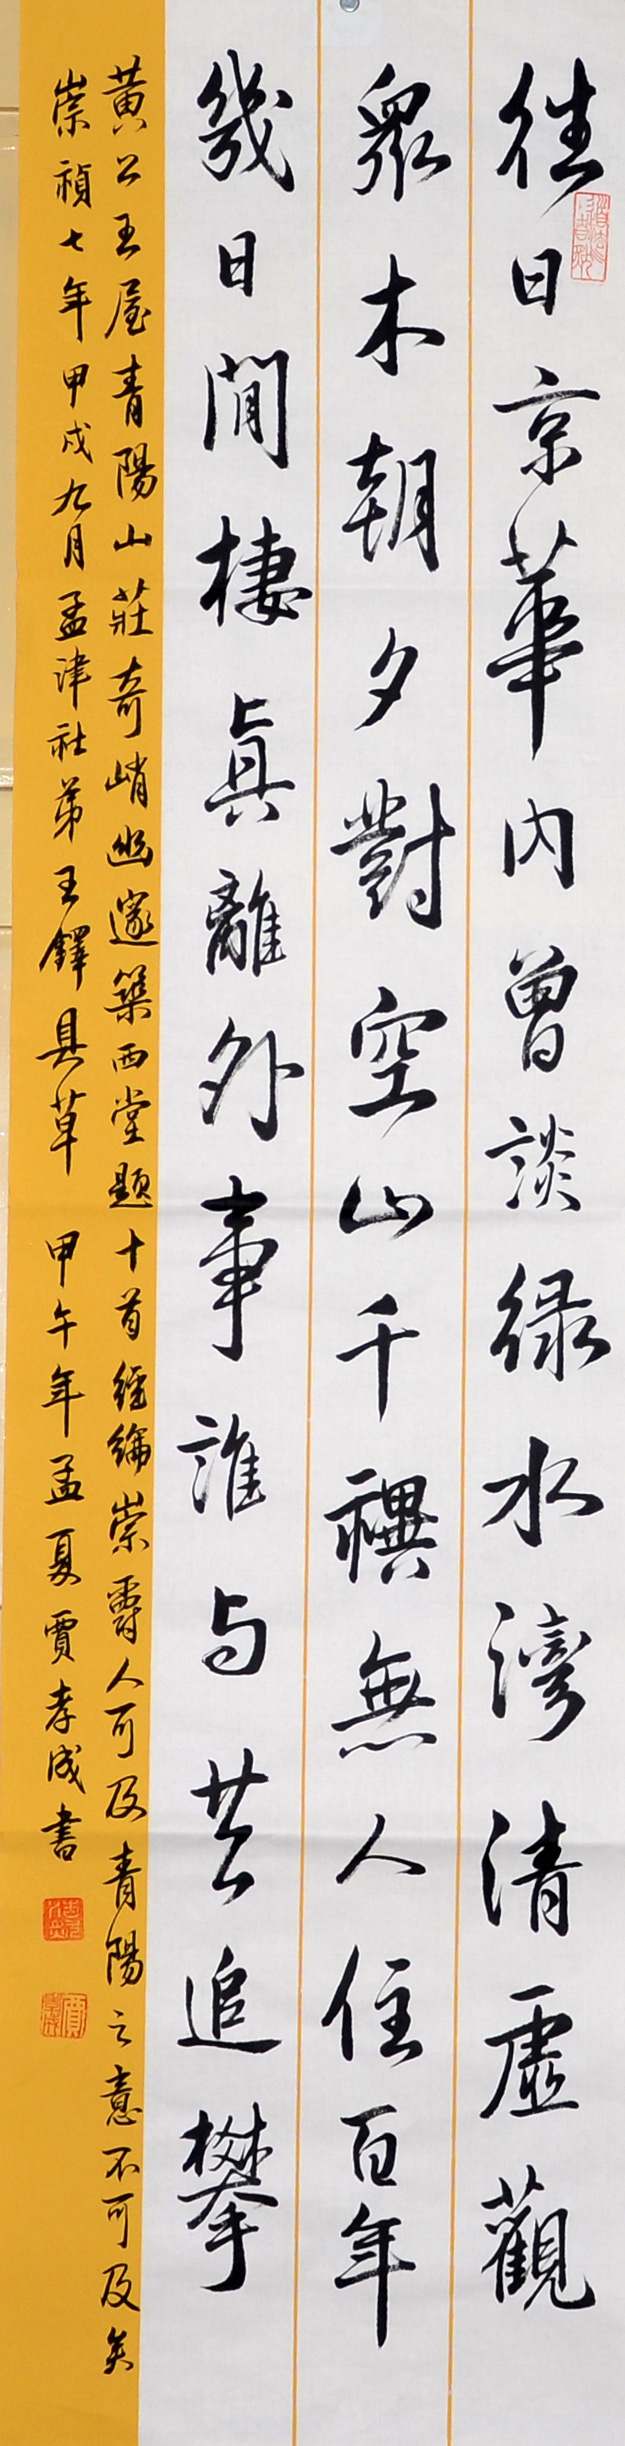 往日京華內曾談緑水灣清虛觀
眾木朝夕對空山千禩無人住百年
幾日閒棲眞離外事誰与共追攀
黃公王屋青陽山莊奇峭幽邃築西堂題十首經綸崇霨人可及青陽之意不可及矣
崇禎七年甲戌九月孟津社弟王鐸具草 甲午年孟夏賈孝成書